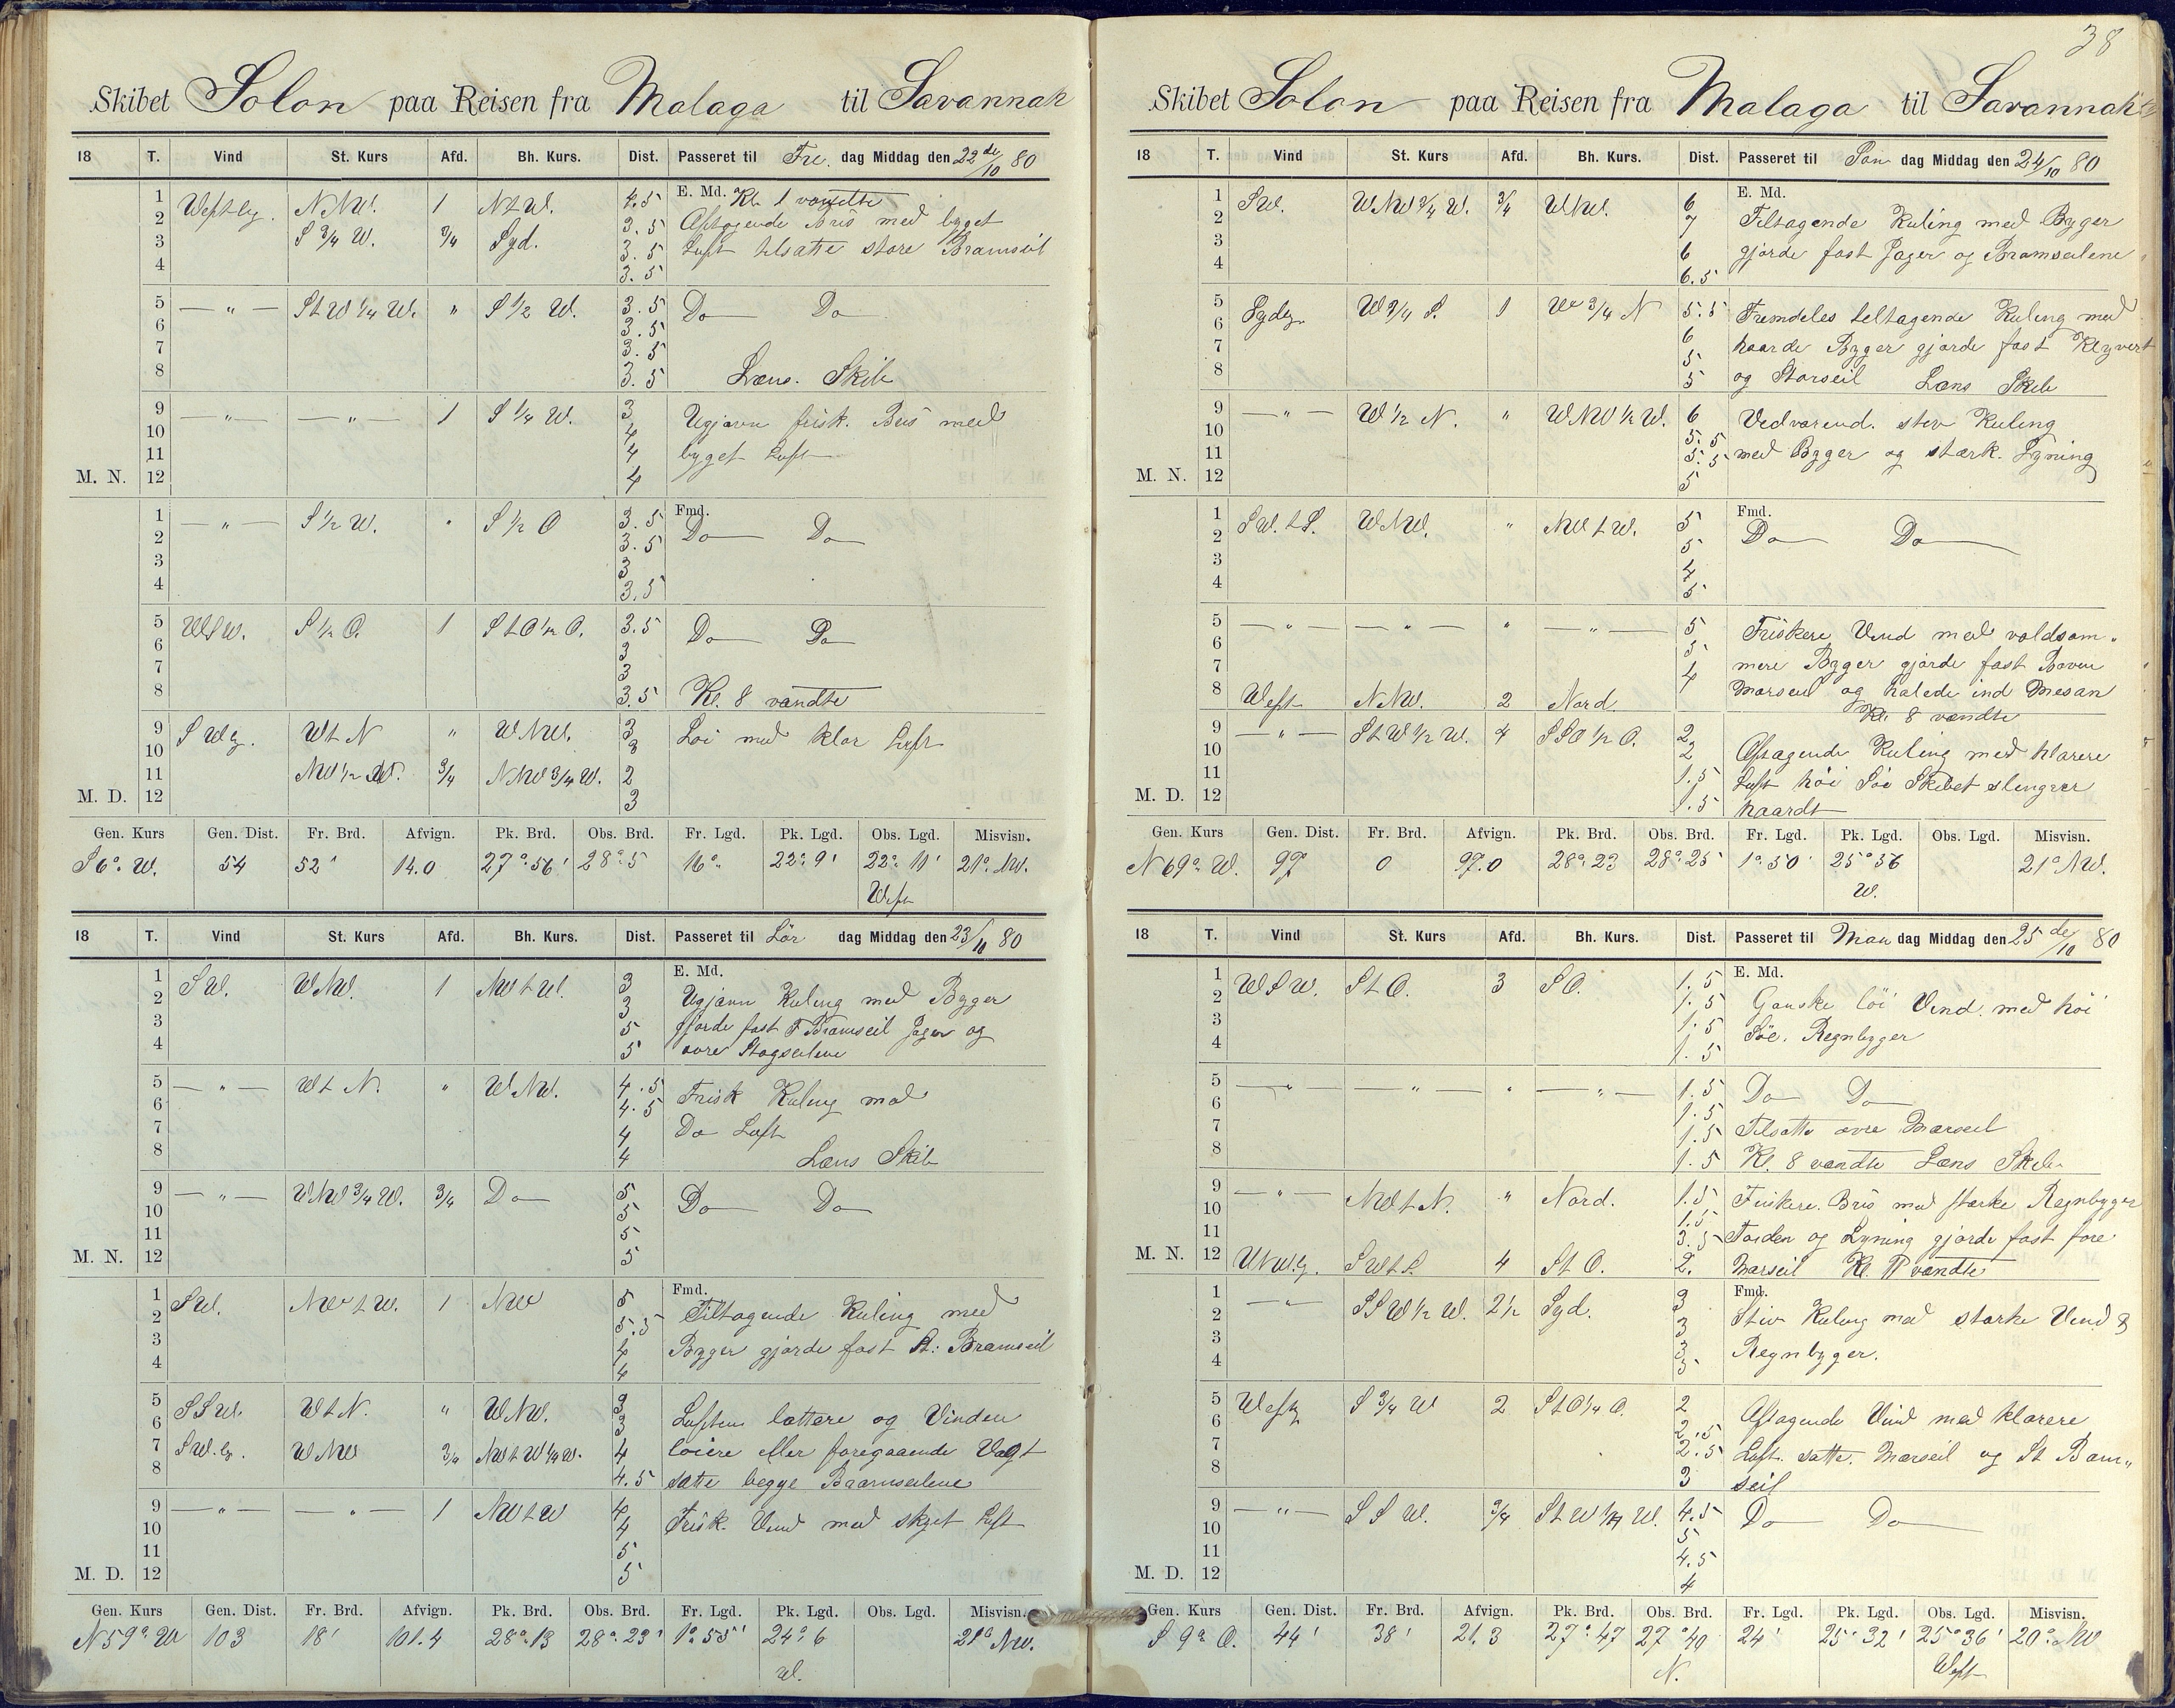 Skibet Solon paa Reisen fra Malaga til Savannah
18 T. Vind St. Kurs Afd. Bh. Kurs. Dist. Passeret til Fre. dag Middag den 22de/10 80
1 Westlg. NNW. 1 NtW. 4.5 E. Md. Kl. 1 vendte
2 3.5 Aftagende Bris med byget
3 S 3/4 W. 3/4 Syd. 3.5 Luft tilsatte store Bramseil
4 3.5
5 — " — StW 1/4 W. " S 1/2 W. 3.5 Do Do
6 3.5
7 3.5
8 3.5 Læns. Skib
9 — " — — " — 1 S 1/4 W. 3 Ugjævn frisk. Bris med
10 4 byget Luft
11 4
M. N. 12 4
1 — " — S 1/2 W. " S 1/2 O 3.5 Fmd. Do Do
2 3.5
3 3
4 3.5
5 WSW. S 1/2 O. 1 StO 1/2 O. 3.5 Do Do
6 3
7 3
8 3.5 Kl. 8 vandte
9 SWlg. WtN " WNW. 3 Löi med klar Luft
10 3
11 NW 1/2 W. 3/4 NNW 3/4 W. 2
M. D. 12 3
Gen. Kurs Gen. Dist. Fr. Brd. Afvign. Pk. Brd. Obs. Brd. Fr. Lgd. Pk. Lgd. Obs. Lgd. Misvisn.
S 6° W. 54 52' 14.0 27° 56' 28° 5 16" 22° 9' 22° 11' 21° NW.
West
18 T. Vind St. Kurs Afd. Bh. Kurs. Dist. Passeret til Lör dag Middag den 23/10 80
1 SW. WNW. 1 NWtW. 3 E. Md.
2 3 Ugjævn Kuling med Byger
3 5 gjorde fast F Bramseil Jager og
4 5 øvre Stagseilene
5 — " — WtN. " WNW. 4.5 Frisk Kuling med
6 4.5
7 4 Do Luft
8 4 Læns Skib
9 — " — WNW 3/4 W. 3/4 Do 5 Do Do
10 5
11 5
M. N. 12 5
1 SW. NWtW. 1 NW 5 Fmd.
2 5.5 Tiltagende Kuling med
3 4 Byger gjorde fast St: Bramseil
4 4
5 SSW. WtN. " WNW. 3 Luften lættere og Vinden
6 3
7 SW.lg. WNW 3/4 NWtW 1/4 W. 4 löiere eller foregaaende Vagt
8 4.5 satte begge Bramseilene
9 — " — — " — 1 NWtW 4 Frisk. Vind med skyet Luft
10 4
11 5
M. D. 12 5
Gen. Kurs Gen. Dist. Fr. Brd. Afvign. Pk. Brd. Obs. Brd. Fr. Lgd. Pk. Lgd. Obs. Lgd. Misvisn.
N 59° W 103 18' 101.4 28° 13 28° 23' 1° 55' 24° 6 21° NW.
W.
38
Skibet Solon paa Reisen fra Malaga til Savannah
18 T. Vind St. Kurs Afd. Bh. Kurs. Dist. Passeret til Søn dag Middag den 24/10 80
1 SW. WNW 3/4 W. 3/4 WNW. 6 E. Md.
2 7 Tiltagende Kuling med Byger
3 6 gjorde fast Jager og Bramseilene
4 6.5
5 Sydlg. W 3/4 S. 1 W 3/4 N 5.5 Fremdeles tiltagende Kuling med
6 6 haarde Byger gjorde fast Klyvert
7 5
8 5 og Storseil Læns Skib
9 — " — W 1/2 N. " WNW 1/2 W. 6 Vedvarend. stiv Kuling
10 5.5
11 5.5 med Byger og stærk. Lyning
M. N. 12 5
1 SW.tS. WNW. " NWtW. 5 Fmd.
2 5 Do Do
3 4
4 5
5 — " — — " — " — " — 5 Friskere Vind med voldsom„
6 5 mere Byger gjorde fast Boven
7 4
8 West NNW. 2 Nord. Mærseil og halede ind Mesan
Kl. 8 vandte
9 — " — StW 1/2 W. 4 SSO 1/2 O. 2
10 2 Aftagende Kuling med klarere
11 1.5 Luft höi Söe Skibet slingrer
M. D. 12 1.5 haardt
Gen. Kurs Gen. Dist. Fr. Brd. Afvign. Pk. Brd. Obs. Brd. Fr. Lgd. Pk. Lgd. Obs. Lgd. Misvisn.
N 69° W. 97 0 97.0 28° 23 28° 25' 1° 50' 25° 56 21° NW.
W.
18 T. Vind St. Kurs Afd. Bh. Kurs. Dist. Passeret til Man dag Middag den 25de/10 80
1 WSW. StO. 3 SO. 1.5 E. Md.
2 1.5 Ganske löi Vind. med höi
3 1.5 Söe. Regnbyger
4 1.5
5 — " — — " — " — " — 1.5 Do Do
6 1.5
7 1.5 Tilsatte øvre Mærseil
8 1.5 Kl. 8 vendte Læns Skib
9 — " — NWtN. " Nord. 1.5 Friskere. Bris med stærke Regnbyger
10 1.5
11 3.5 Torden og Lyning gjorde fast fore
M. N. 12 WNW.lg. SWtS. 4 StO. 2. Mærseil Kl. 11 vandte
1 — " — SSW 1/2 W. 2 1/2 Syd. 3 Fmd.
2 3 Stiv Kuling med stærke Vind &
3 3 Regnbyger.
4 3
5 Westlg S 3/4 W 2 StO 1/4 O. 2 Aftagende Vind med klarere
6 2.5
7 2.5 Luft. satte. Mærseil og St Bram„
8 3 seil
9 — " — SSW. 3/4 StW 1/4 W. 4.5 Do Do
10 5
11 4.5
M. D. 12 4
Gen. Kurs Gen. Dist. Fr. Brd. Afvign. Pk. Brd. Obs. Brd. Fr. Lgd. Pk. Lgd. Obs. Lgd. Misvisn.
S 9° O. 44' 38' 21.3 27° 47 27° 40 24' 25° 32' 25° 36' 20° NW
N. West